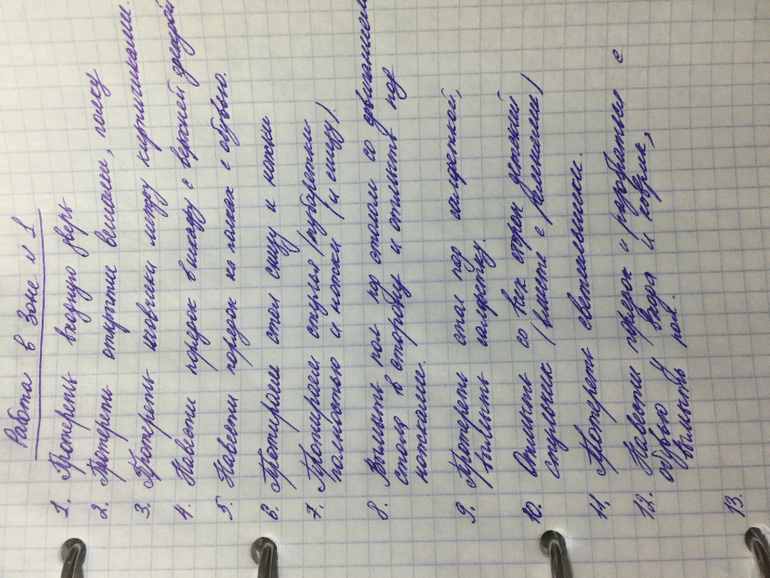 Работа в зоне N 1
1. Протереть входную дверь
2. Протереть открытые вешалки, полку
3. Протереть шовчики между кирпичиками.
4. Навести порядок в шкафу с верхней одеждой
5. Навести порядок на полках с обувью.
6. Протираем стол снизу и ножки
7. Протираем стулья/табуретки
полностью и ножки (и снизу)
8. Вымыть пол под столом со движением
стола в сторону и отмыть под
ножками.
9. Протереть стол под салфеткой,
вымыть салфетку.
10. Отмыть со всех сторон детский
стульчик (вместе с ремнями)
11. Протереть светильники.
12. Навести порядок и разобраться с
обувью у входа и коврик,
вымыть пол.
13.